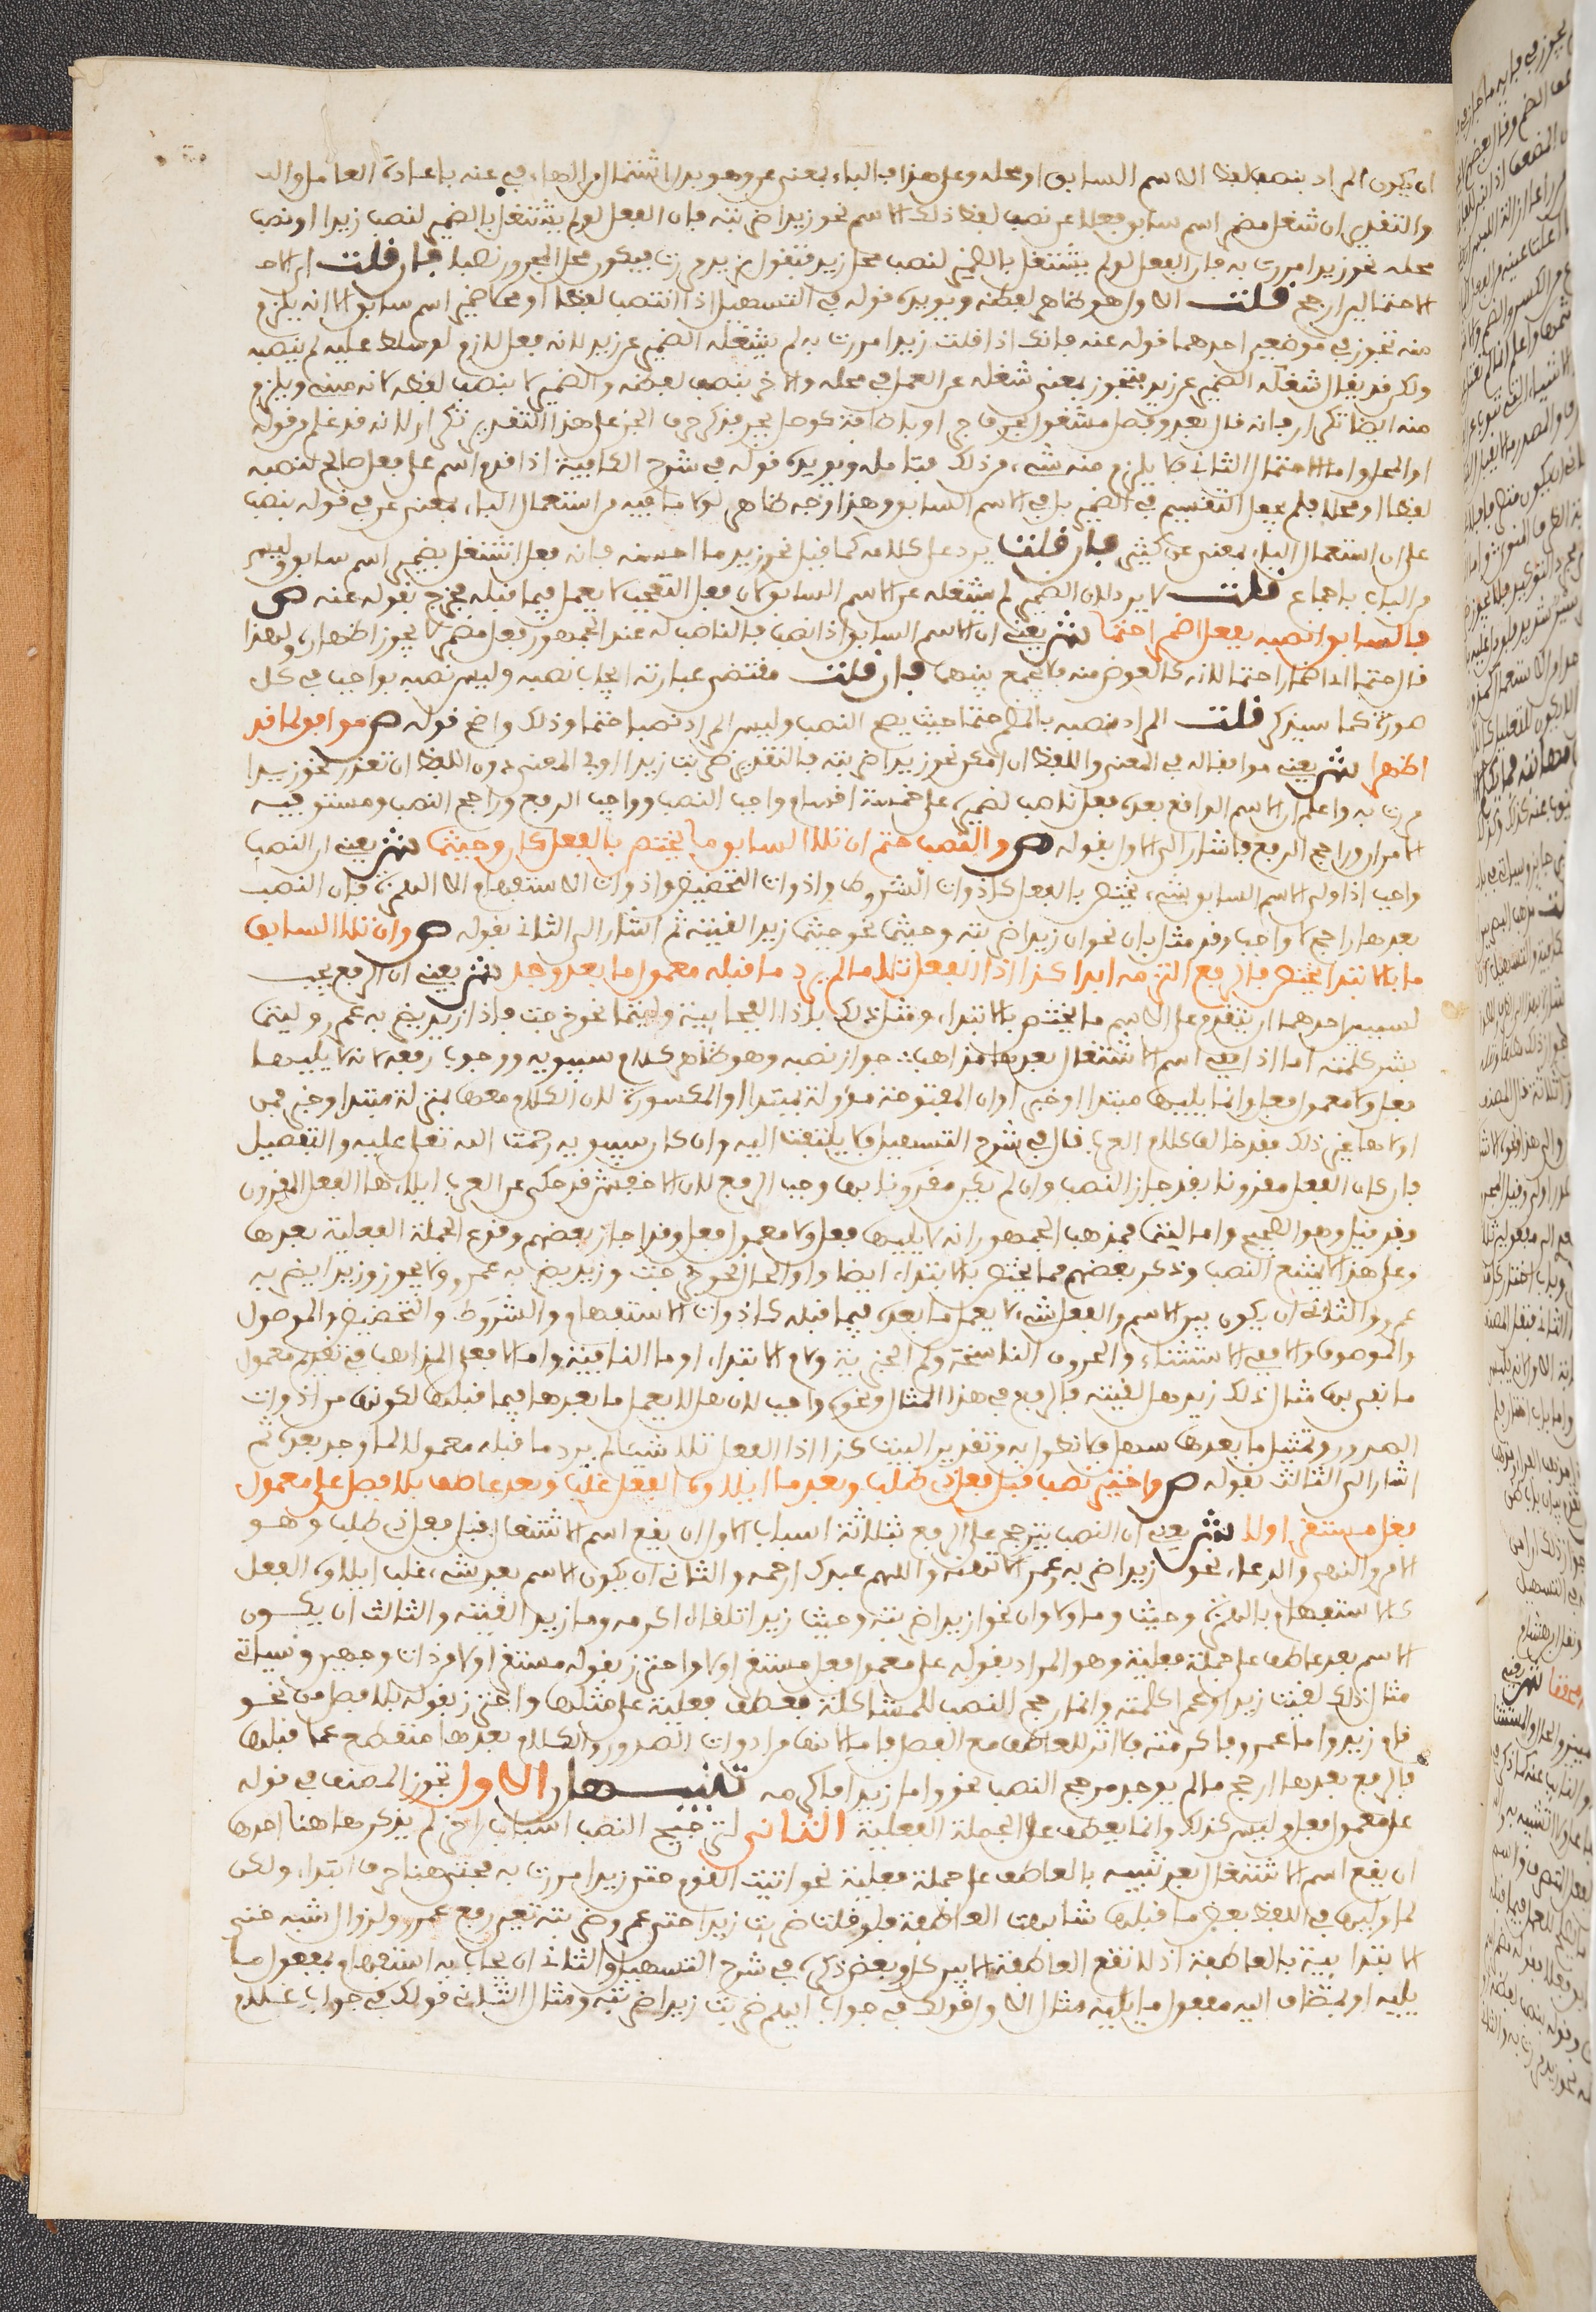 ان يكون المراد بنصب لفظ الاسم السابق او محله وعلى هذا فالباء بمعنى عن وهو بدل اشتمال من الهاء في عنه باعادة العامل والا
والتقدير ان شغل مضمر اسم سابق فعلا عن نصب لفظ ذلك الاسم نحو زيدا ضربته فان الفعل لو لم يشتغل بالضمير لنصب زيدا او نصب
محله نحو زيدا مررت به فان الفعل لو لم يشتغل بالضمير لنصب محل زيد فتقول بزيد مررت فيكون محل المجرور نصبا فان قلت اي الا
الاحتمالين ارجح قلت الاول هو ظاهر لفظه ويؤيده قوله في التسهيل اذا انتصب لفظا او محلا ضمير اسم سابق الا انه يلزم
منه تجوز في موضعين احدهما قوله عنه فانك اذا قلت زيدا مررت به لم يشغله الضمير عن زيد لانه فعل لازم لو سلط عليه لم ينصبه
ولكن قد يقال شغله الضمير عن زيد بتجوز بمعنى شغله عن العمل في محله والاخر بنصب لفظه والضمير لا ينصب لفظه لانه مبني ويلزم
منه ايضا تكرار فانه قال بعد وفصل مشغول بحرف جر او باضافة كوصل يجر فذكر حرف الجر على هذا التقدير تكرار لانه قد علم من قوله
او المحل واما الاحتمال الثاني فلا يلزم منه شيء من ذلك فتامله ويؤيده قوله في شرح الكافية اذا قدم اسم على فعل صالح لنصبه
لفظا او محلا فلم يجعل التقسيم في الضمير بل في الاسم السابق وهذا وجه ظاهر لولا ما فيه من استعمال الباء بمعنى عن في قوله بنصب
على ان استعمال الباء بمعنى عن كثير فان قلت يرد على كلامه كما قيل نحو زيد ما احسنه فانه فعل اشتغل بضمير اسم سابق وليس
من الباب باجماع قلت لا يرد لان الضمير لم يشغله عن الاسم السابق لان فعل التعجب لا يعمل فيما قبله فخرج بقوله عنه ص
فالسابق انصبه بفعل اضمرا حتما ش يعني ان الاسم السابق اذا نصب فالناصب له عند الجمهور فعل مضمر لا يجوز اظهاره ولهذا
قال حتما اي اضمارا حتما لانه كالعوض منه فلا يجمع بينهما فان قلت مقتضى عبارته ايجاب نصبه وليس نصبه بواجب في كل
صورة كما سيذكر قلت المراد نصبه بالمضمر حتما حيث يصح النصب وليس المراد نصبا حتما وذلك واضح قوله ص موافق لما قد
اظهرا ش يعني موافقا له في المعنى واللفظ ان امكن نحو زيدا ضربته فالتقدير ضربت زيدا او في المعنى دون اللفظ ان تعذر نحو زيدا
مررت به واعلم ان الاسم الواقع بعده فعل ناصب لضميره على خمسة اقسام واجب النصب وواجب الرفع وراجح النصب ومستو فيه
الامران وراجح الرفع فاشار الى الاول بقوله ص والنصب حتم ان تلا السابق ما يختص بالفعل كان وحيثما ش يعني ان النصب
واجب اذا ولي الاسم السابق شيء يختص بالفعل كادوات الشروط وادوات التحضيض وادوات الاستفهام الا الهمزة فان النصب
بعدها راجح لا واجب وقد مثل بان نحو ان زيدا ضربته وحيثما نحو حيثما زيدا لقيته ثم اشار الى الثاني بقوله ص وان تلا السابق
ما بالابتدا يختص فالرفع التزمه ابدا كذا اذا الفعل تلا ما لم يرد ما قبله معمولا ما بعد وجد ش يعني ان الرفع يجب
لسببين احدهما ان يتقدم على الاسم ما يختص بالابتداء ومثل ذلك باذا الفجائية وليتما نحو خرجت فاذا زيد يضربه عمرو وليتما
بشر كلمته اما اذا ففي اسم الاشتغال بعدها مذاهب جواز نصبه وهو ظاهر كلام سيبويه ووجوب رفعه لانه لا يليها
فعل ولا معمول فعل وانما يليها مبتدا او خبر او ان المفتوحة مؤولة بمبتدا او المكسورة لان الكلام معها بمنزلة مبتدا وخبر فمن
اولاها غير ذلك فقد خالف كلام العرب قال في شرح التسهيل فلا يلتفت اليه وان كان سيبويه رحمت الله تعلى عليه والتفصيل
فان كان الفعل مقرونا بقد جاز النصب وان لم يكن مقرونا بها وجب الرفع لان الاخفش قد حكى عن العرب ايلاءها الفعل المقرون
وقد قيل وهو الصحيح واما ليتما فمذهب الجمهور انه لا يليها فعل ولا معمول فعل وقد اجاز بعضهم وقوع الجملة الفعلية بعدها
وعلى هذا لا يمتنع النصب وذكر بعضهم مما يختص بالابتداء ايضا واو الحال نحو خرجت وزيد يضربه عمرو ولا يجوز وزيدا يضربه
عمرو والثاني ان يكون بين الاسم والفعل شيء لا يعمل ما بعده فيما قبله كادوات الاستفهام والشروط والتحضيض والموصول
والموصوف والا في الاستثناء والحروف الناسخة وكم الخبرية ولام الابتداء او ما النافية واما لا فعلى المذاهب في تقديم معمول
ما نفي بها مثال ذلك زيد هل لقيته فالرفع في هذا المثال ونحوه واجب لان هل لا يعمل ما بعدها فيما قبلها لكونها من ادوات
الصدور وتمثيل ما بعدها سهل فلا نطول به وتقدير البيت كذا اذا الفعل تلا شيئا لم يرد ما قبله معمولا لما وجد بعده ثم
اشار الى الثالث بقوله ص واختير نصب قبل فعل ذي طلب وبعد ما ايلاؤه الفعل غلب وبعد عاطف بلا فصل على معمول
فعل مستقر اولا ش يعني ان النصب يترجح على الرفع بثلاثة اسباب الاول ان يقع اسم الاشتغال قبل فعل ذي طلب وهو
الامر والنهي والدعاء نحو زيدا اضربه وعمرا لا تهنه واللهم عبدك ارحمه والثاني ان يكون الاسم بعد شيء غلب ايلاؤه الفعل
كالاستفهام بالهمزة وحيث وما ولا وان نحو ازيدا ضربته وحيث زيدا تلقاه اكرمه وما زيدا لقيته والثالث ان يكون
الاسم بعد عاطف على جملة فعلية وهو المراد بقوله على معمول فعل مستقر اولا واحترز بقوله مستقر اولا من ذات وجهين وسياتي
مثال ذلك لقيت زيدا وعمرا كلمته وانما رجح النصب للمشاكلة فعطف فعلية على مثلها واحترز بقوله بلا فصل من نحو
قام زيد واما عمرو فاكرمته فلا اثر للعاطف مع الفصل باما لانها من ادوات الصدور والكلام بعدها منقطع عما قبلها
فالرفع بعدها ارجح ما لم يوجد مرجح النصب نحو واما زيدا فاكرمه تنبيهان الاول تجوز المصنف في قوله
على معمول فعل وليس كذلك وانما يعطف على الجملة الفعلية الثاني لترجيح النصب اسباب اخر لم يذكرها هنا احدها
ان يقع اسم الاشتغال بعد شبيه بالعاطف على جملة فعلية نحو اتيت القوم حتى زيدا مررت به فحتى هنا حرف ابتداء ولكن
لما وليها في اللفظ بعض ما قبلها شابهت العاطفة فلو قلت ضربت زيدا حتى عمرو ضربته تعين رفع عمرو لزوال شبه حتى
الابتدائية بالعاطفة اذ لا تقع العاطفة الا بين كل وبعض ذكره في شرح التسهيل والثاني ان يجاب به استفهام بمفعول ما
يليه او بمضاف اليه مفعول ما يليه مثال الاول قولك في جواب ايهم ضربت زيدا ضربته ومثال الثاني قولك في جواب غلام